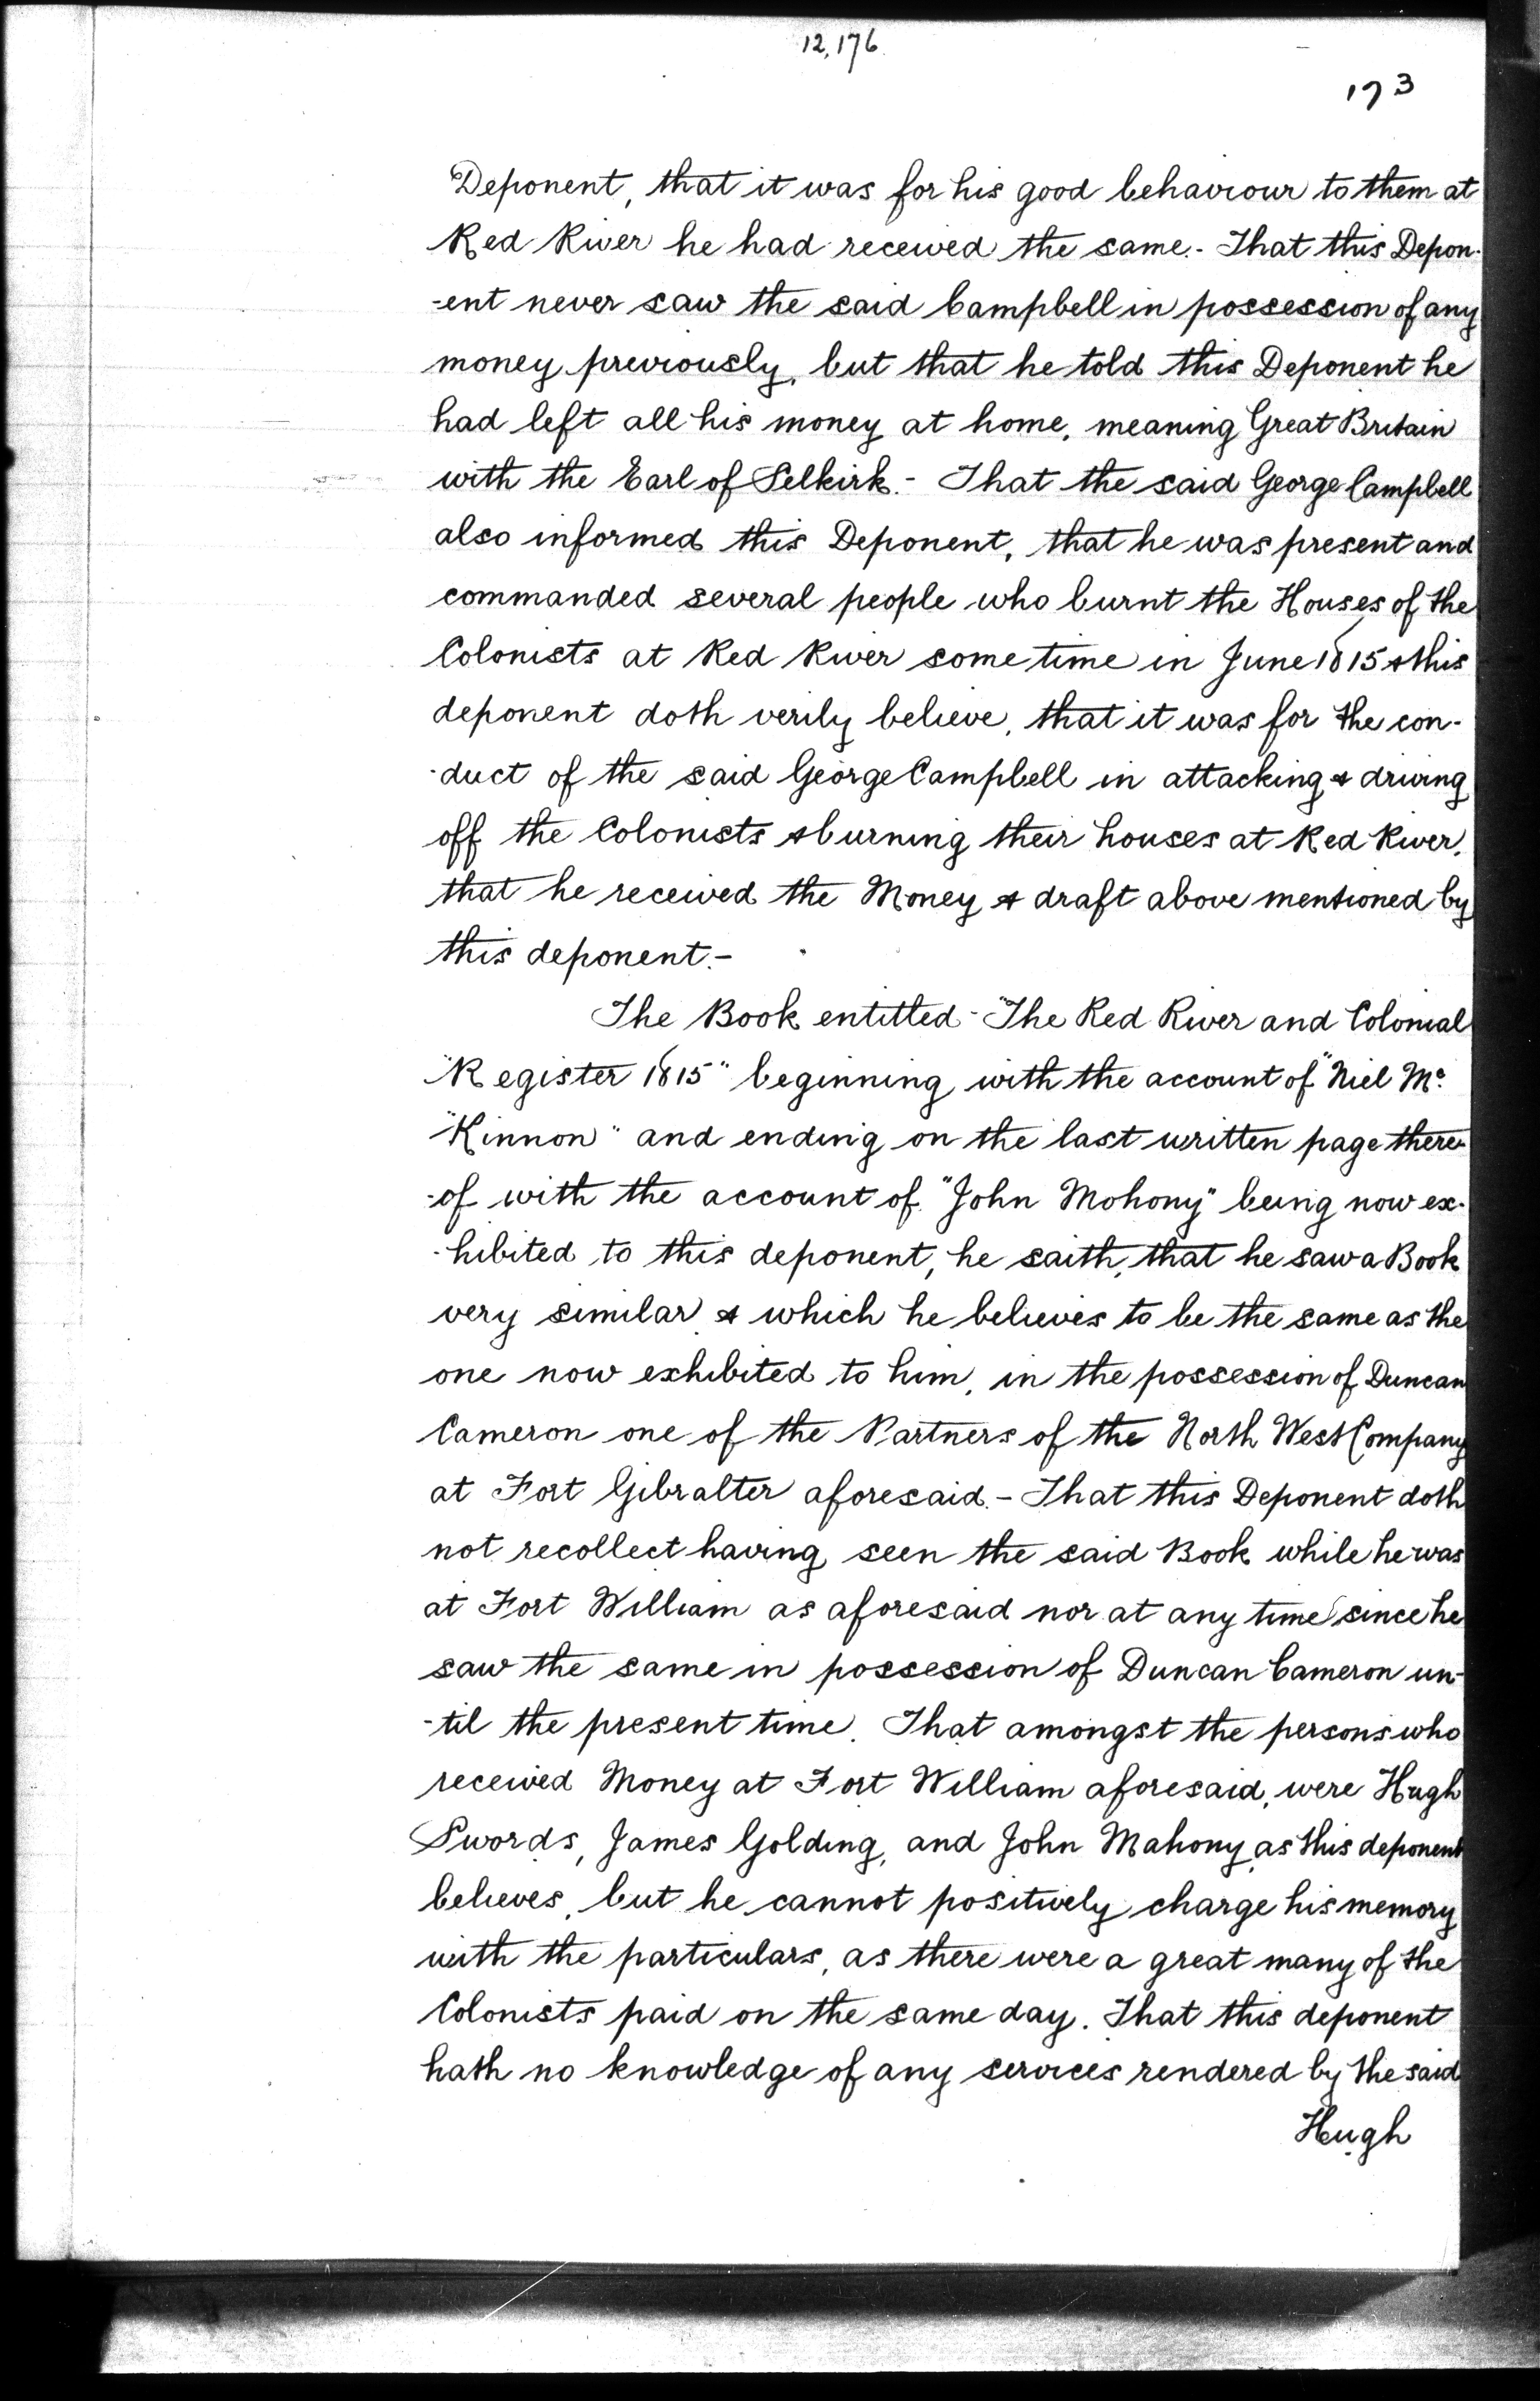 12,176
173
Deponent, that it was for his good behaviour to them at
Red River he had received the same.- That this Depon-
-ent never saw the said Campbell in possession of any
money previously, but that he told this Deponent he
had left all his money at home, meaning Great Britain
with the Earl of Selkirk.- That the said George Campbell
also informed this Deponent, that he was present and
commanded several people who burnt the Houses of the
Colonists at Red River some time in June 1815 & this
deponent doth verily believe, that it was for the con-
-duct of the said George Campbell in attacking & driving
off the Colonists & burning their houses at Red River,
that he received the Money & draft above mentioned by
this deponent.-
The Book entitled - "The Red River and Colonial
"Register 1815" beginning with the account of "Niel Mc
"Kinnon" and ending on the last written page there-
-of with the account of "John Mohony" being now ex-
-hibited to this deponent, he saith, that he saw a Book
very similar & which he believes to be the same as the
one now exhibited to him, in the possession of Duncan
Cameron one of the Partners of the North West Company
at Fort Gibralter aforesaid.- That this Deponent doth
not recollect having seen the said Book while he was
at Fort William as aforesaid nor at any time since he
saw the same in possession of Duncan Cameron un-
-til the present time. That amongst the persons who
received Money at Fort William aforesaid, were Hugh
Swords, James Golding, and John Mahony as this deponent
believes, but he cannot positively charge his memory
with the particulars, as there were a great many of the
Colonists paid on the same day. That this deponent
hath no knowledge of any services rendered by the said
Hugh